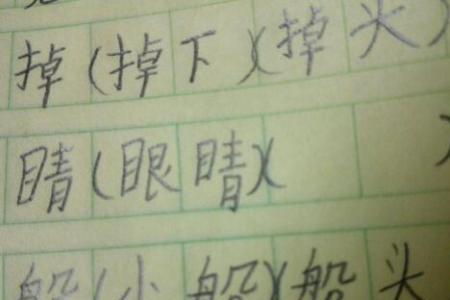 掉(掉下)(掉头)
睛(眼睛)(    )
船(小船)(船头